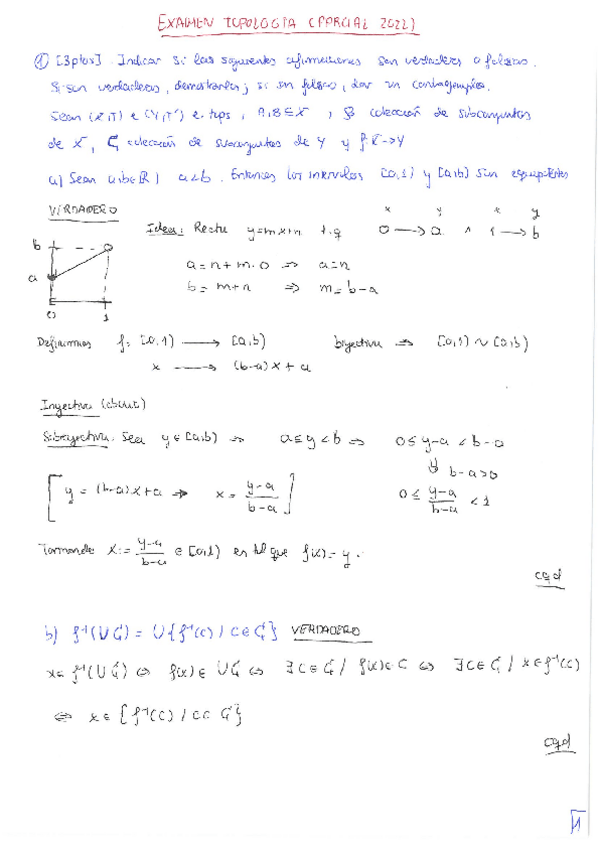 EXAMEN TOPOLOGIA (PARCIAL 2022)
① [3ptos]. Indicar si las siguientes afirmaciones son verdaderas o falsas.
Si son verdaderas, demostrarlas; si son falsas, dar un contraejemplo.
Sean (X,T) e (Y,T') e. tops, A,B⊆X, B colección de subconjuntos
de X, C colección de subconjuntos de Y y f: X→Y
a) Sean a,b∈ℝ, a<b. Entonces los intervalos [0,1) y [a,b) son equipotentes
VERDADERO
Idea: Recta y=mx+n t.q 0→a ∧ 1→b
x y x y
b
a
0 1
a=n+m·0 ⇒ a=n
b=m+n ⇒ m=b-a
Definimos f: [0,1) → [a,b) biyectiva ⇒ [0,1) ~ [a,b)
x → (b-a)x + a
Inyectiva (obvio)
Sobreyectiva. Sea y∈[a,b) ⇒ a≤y<b ⇒ 0≤y-a<b-a
⇓ b-a>0
[y = (b-a)x+a ⇒ x = (y-a)/(b-a)] 0 ≤ (y-a)/(b-a) < 1
Tomando x:= (y-a)/(b-a) ∈ [0,1) es tal que f(x)=y.
cqd
b) f⁻¹(∪C) = ∪{f⁻¹(C) / C∈C} VERDADERO
x∈f⁻¹(∪C) ⇔ f(x)∈∪C ⇔ ∃C∈C / f(x)∈C ⇔ ∃C∈C / x∈f⁻¹(C)
⇔ x∈{f⁻¹(C) / C∈C}
cqd
1